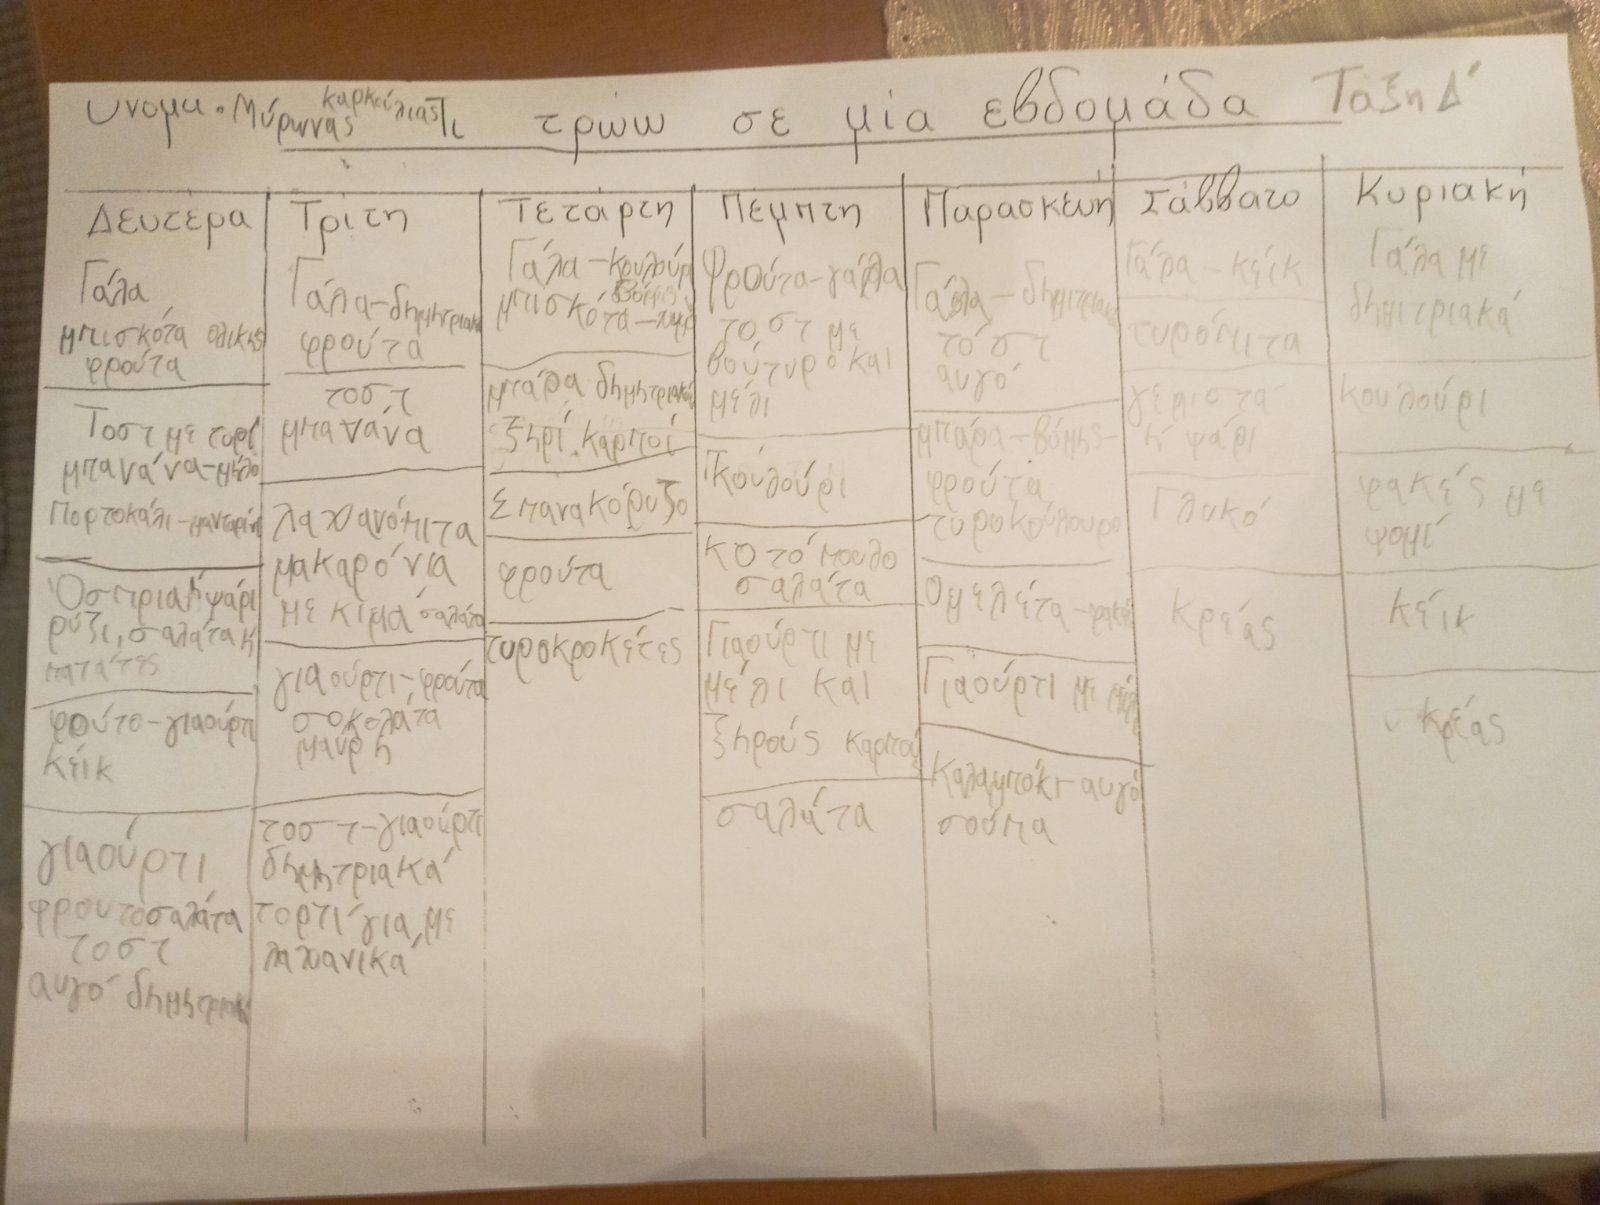 Ονομα. Μύρωνας καρκούλιας Τι τρώω σε μία εβδομάδα Τάξη Δ'
Δευτέρα
Γάλα
μπισκότα ολικης
φρούτα
Τοστ με τυρί
μπανάνα-μήλο
Πορτοκάλι-μανταρίνι
Όσπρια ή ψάρι
ρύζι, σαλάτα κ
πατάτες
φρούτο-γιαούρτι
κέικ
γιαούρτι
φρουτοσαλάτα
τοστ
αυγό δημητριακά
Τρίτη
Γάλα-δημητριακά
φρούτα
τοστ
μπανάνα
λαχανόπιτα
μακαρόνια
με κιμά σαλάτα
γιαούρτι-φρούτα
σοκολάτα
μαύρη
τοστ-γιαούρτι
δημητριακά
τορτίγια με
λαχανικά
Τετάρτη
Γάλα-κουλούρι
μπισκότα βρώμης
μπάρα δημητριακών
ξηρί καρποί
Σπανακόρυζο
φρούτα
τυροκροκέτες
Πέμπτη
Φρούτα-γάλα
τοστ με
βούτυρο και
μέλι
Κουλούρι
κοτόπουλο
σαλάτα
Γιαούρτι με
μέλι και
ξηρούς καρπούς
σαλάτα
Παρασκευή
Γάλα-δημιτριακά
τόστ
αυγό
μπάρα-βρώμης-
φρούτα
τυροκούλουρο
Ομελέτα-φακές
Γιαούρτι με μέλι
Καλαμπόκι-αυγό
σούπα
Σάββατο
Γάλα-κέικ
τυρόπιτα
γεμιστά
ή ψάρι
Γλυκό
κρέας
Κυριακή
Γάλα με
δημιτριακά
κουλούρι
φακές με
ψομί
κέικ
κρέας